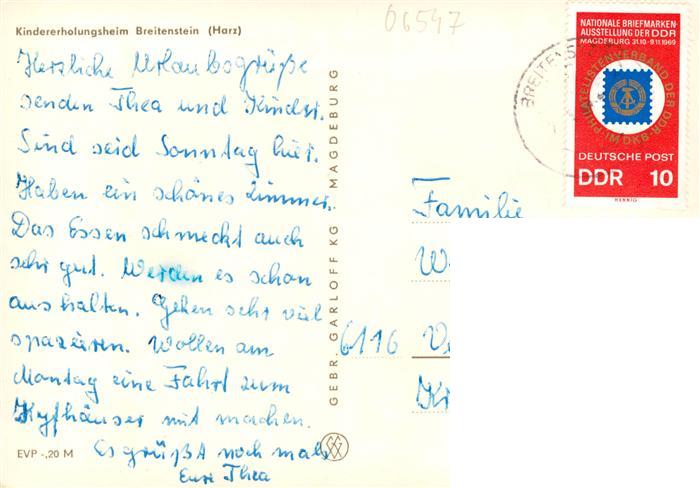 06547
Kindererholungsheim Breitenstein (Harz)
Herzliche Urlaubsgrüße
senden Thea und Kinder.
Sind seid Sonntag hier.
Haben ein schönes Zimmer.
Das Essen schmeckt auch
sehr gut. Werden es schon
aushalten. Gehen sehr viel
spazieren. Wollen am
Montag eine Fahrt zum
Kyfhäuser mit machen.
Es grüßt noch mals
Eure Thea
EVP -,20 M
GEBR. GARLOFF KG MAGDEBURG
NATIONALE BRIEFMARKEN-
AUSSTELLUNG DER DDR
MAGDEBURG 31.10.-9.11.1969
PHILATELISTENVERBAND DER DDR
IM DKB
DEUTSCHE POST
DDR 10
HENNIG
Familie
6116